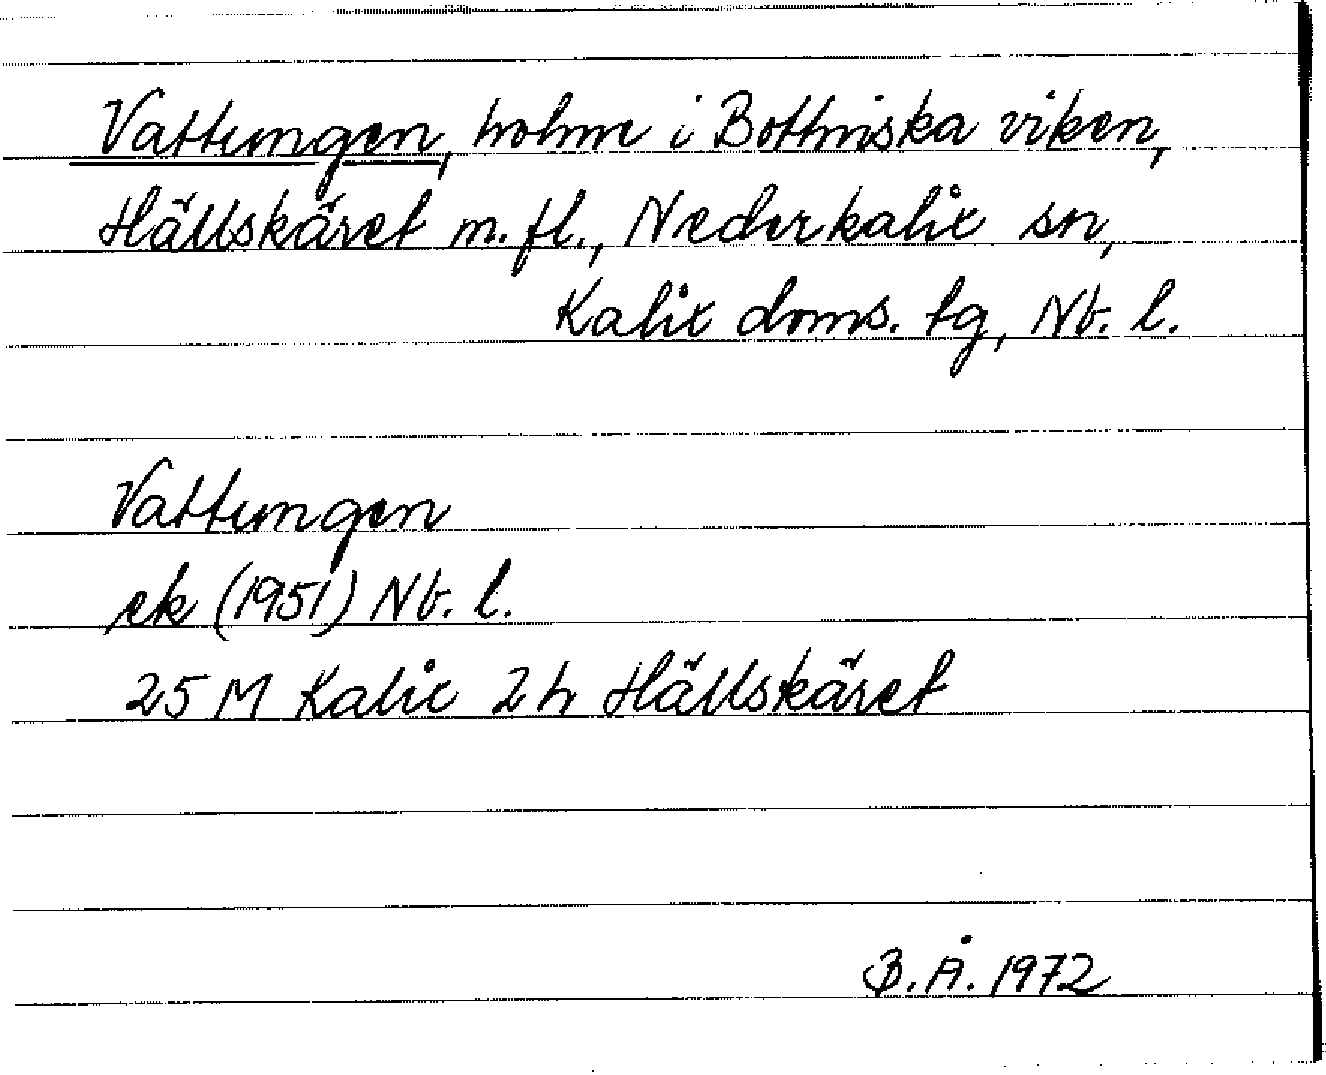 Vattungen, holme i Bottniska viken,
Hällskäret m.fl., Nederkalix sn,
Kalix doms. tg, Nb. l.
Vattungen
ek (1951) Nb. l.
25 M Kalix 2h Hällskäret
B.Å. 1972